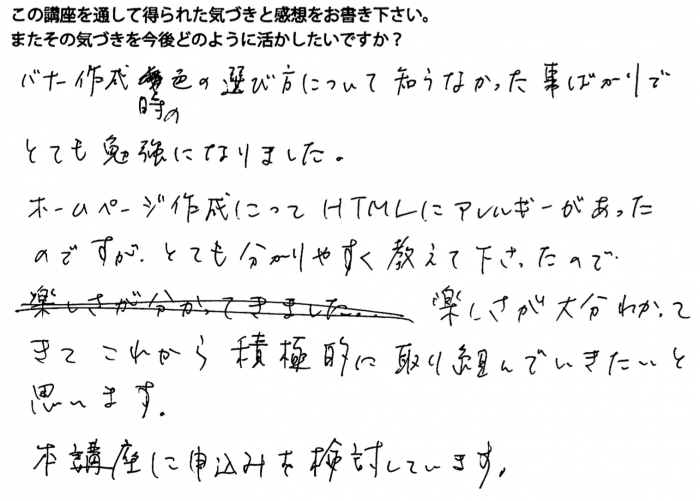 この講座を通して得られた気づきと感想をお書き下さい。
またその気づきを今後どのように活かしたいですか？
バナー作成時の色の選び方について知らなかった事ばかりで
とても勉強になりました。
ホームページ作成につって HTMLにアレルギーがあった
のですが、とても分かりやすく教えて下さったので
楽しさが分かってきました... 楽しさが大分わかって
きてこれから積極的に取り組んでいきたいと
思います。
本講座に申込みを検討しています。